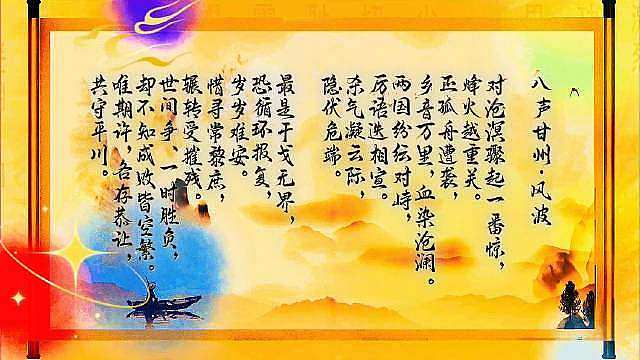 八声甘州·风波
对沧溟骤起一番惊，
烽火越重关。
正孤舟遭袭，
乡音万里，血染沧澜。
两国纷纭对峙，
厉语迭相宣。
杀气凝云际，
隐伏危端。
最是干戈无界，
恐循环报复，
岁岁难安。
惜寻常黎庶，
辗转受摧残。
世间争、一时胜负，
却不知成败皆空繁。
唯期许，各存恭让，
共守平川。